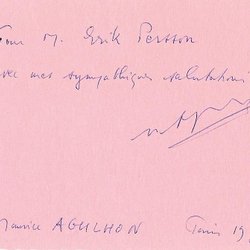 Pour M. Erik Persson
avec mes sympathiques salutations
Maurice AGULHON Paris 19